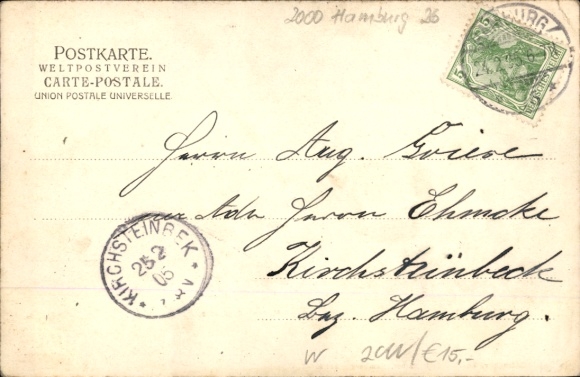 2000 Hamburg 26
POSTKARTE.
WELTPOSTVEREIN
CARTE-POSTALE.
UNION POSTALE UNIVERSELLE
5 5
Herrn Aug. Griese
Adr Herrn Ehmcke
KIRCHSTEINBEK
25 2
05
Kirchsteinbeck
Bez. Hamburg.
€15,-